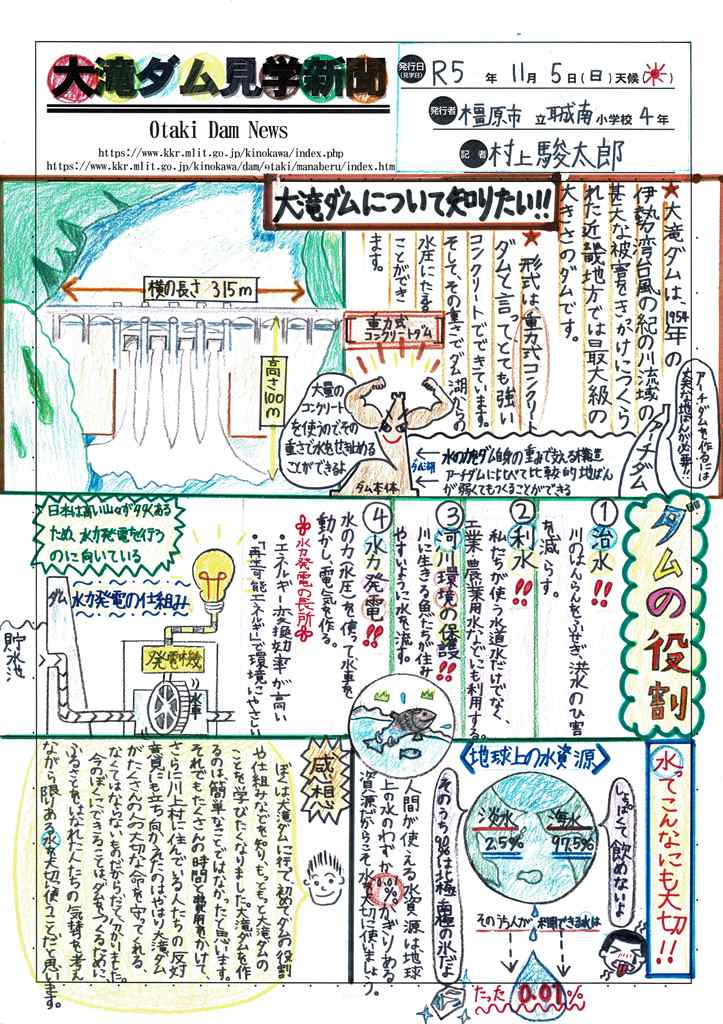 大滝ダム見学新聞
Otaki Dam News
https://www.kkr.mlit.go.jp/kinokawa/index.php
https://www.kkr.mlit.go.jp/kinokawa/dam/otaki/manaberu/index.htm
発行日(見学日) R5年 11月 5日(日) 天候
発行者 橿原市 立 耳成南 小学校 4年
記者 村上駿太郎
大滝ダムについて知りたい!!
★大滝ダムは、1954年の
伊勢湾台風の紀の川流域の
甚大な被害をきっかけにつくら
れた近畿地方では最大級の
大きさのダムです。
★形式は重力式コンクリート
ダムと言ってとても強い
コンクリートでできています。
そして、その重さでダム湖からの
水圧にたえる
ことができ
ます。
横の長さ 315m
高さ100m
重力式
コンクリートダム
大量の
コンクリート
を使うのでその
重さで水をせき止める
ことができるよ
ダム本体
ダム湖
←水の力をダム自身の重みで支える構造
←アーチダムにくらべて比較的地ばん
が弱くてもつくることができる
アーチダム
アーチダムを作るには
丈夫な地ばんが必要!!
ダムの役割
①治水!!
川のはんらんをふせぎ、洪水のひ害
を減らす。
②利水!!
私たちが使う水道水だけでなく、
工業、農業用水などにも利用する。
③河川環境の保護!!
川に生きる魚たちが住み
やすいように水を流す。
④水力発電!!
水の力(水圧)を使って水車を
動かし、電気を作る。
水力発電の長所
・エネルギー変換効率が高い
・「再生可能エネルギー」で環境にやさしい
日本は高い山々が多くある
ため、水力発電を行う
のに向いている
水力発電の仕組み
ダム
貯水池
発電機
水車
水ってこんなにも大切!!
地球上の水資源
しょっぱくて飲めないよ
海水
97.5%
淡水
2.5%
そのうち人が利用できる水は
たった0.01%
そのうち90%は北極、南極の氷だよ
人間が使える水資源は地球
上の水のわずか0.01%。かぎりある
資源だからこそ水を大切に使いましょう。
感想
ぼくは大滝ダムに行って、初めてダムの役割
や仕組みなどを知り、もっともっと大滝ダムの
ことを学びたくなりました。大滝ダムを作
るのは簡単なことではなかったと思います。
それでもたくさんの時間と費用をかけて、
さらに川上村に住んでいる人たちの反対
意見にも立ち向かえたのはやはり大滝ダム
がたくさんの人の大切な命を守ってくれる、
なくてはならないものだからだと分かりました。
今のぼくにできることは、ダムをつくるために、
ふるさとをはなれた人たちの気持ちを考え
ながら限りある水を大切に使うことだと思います。